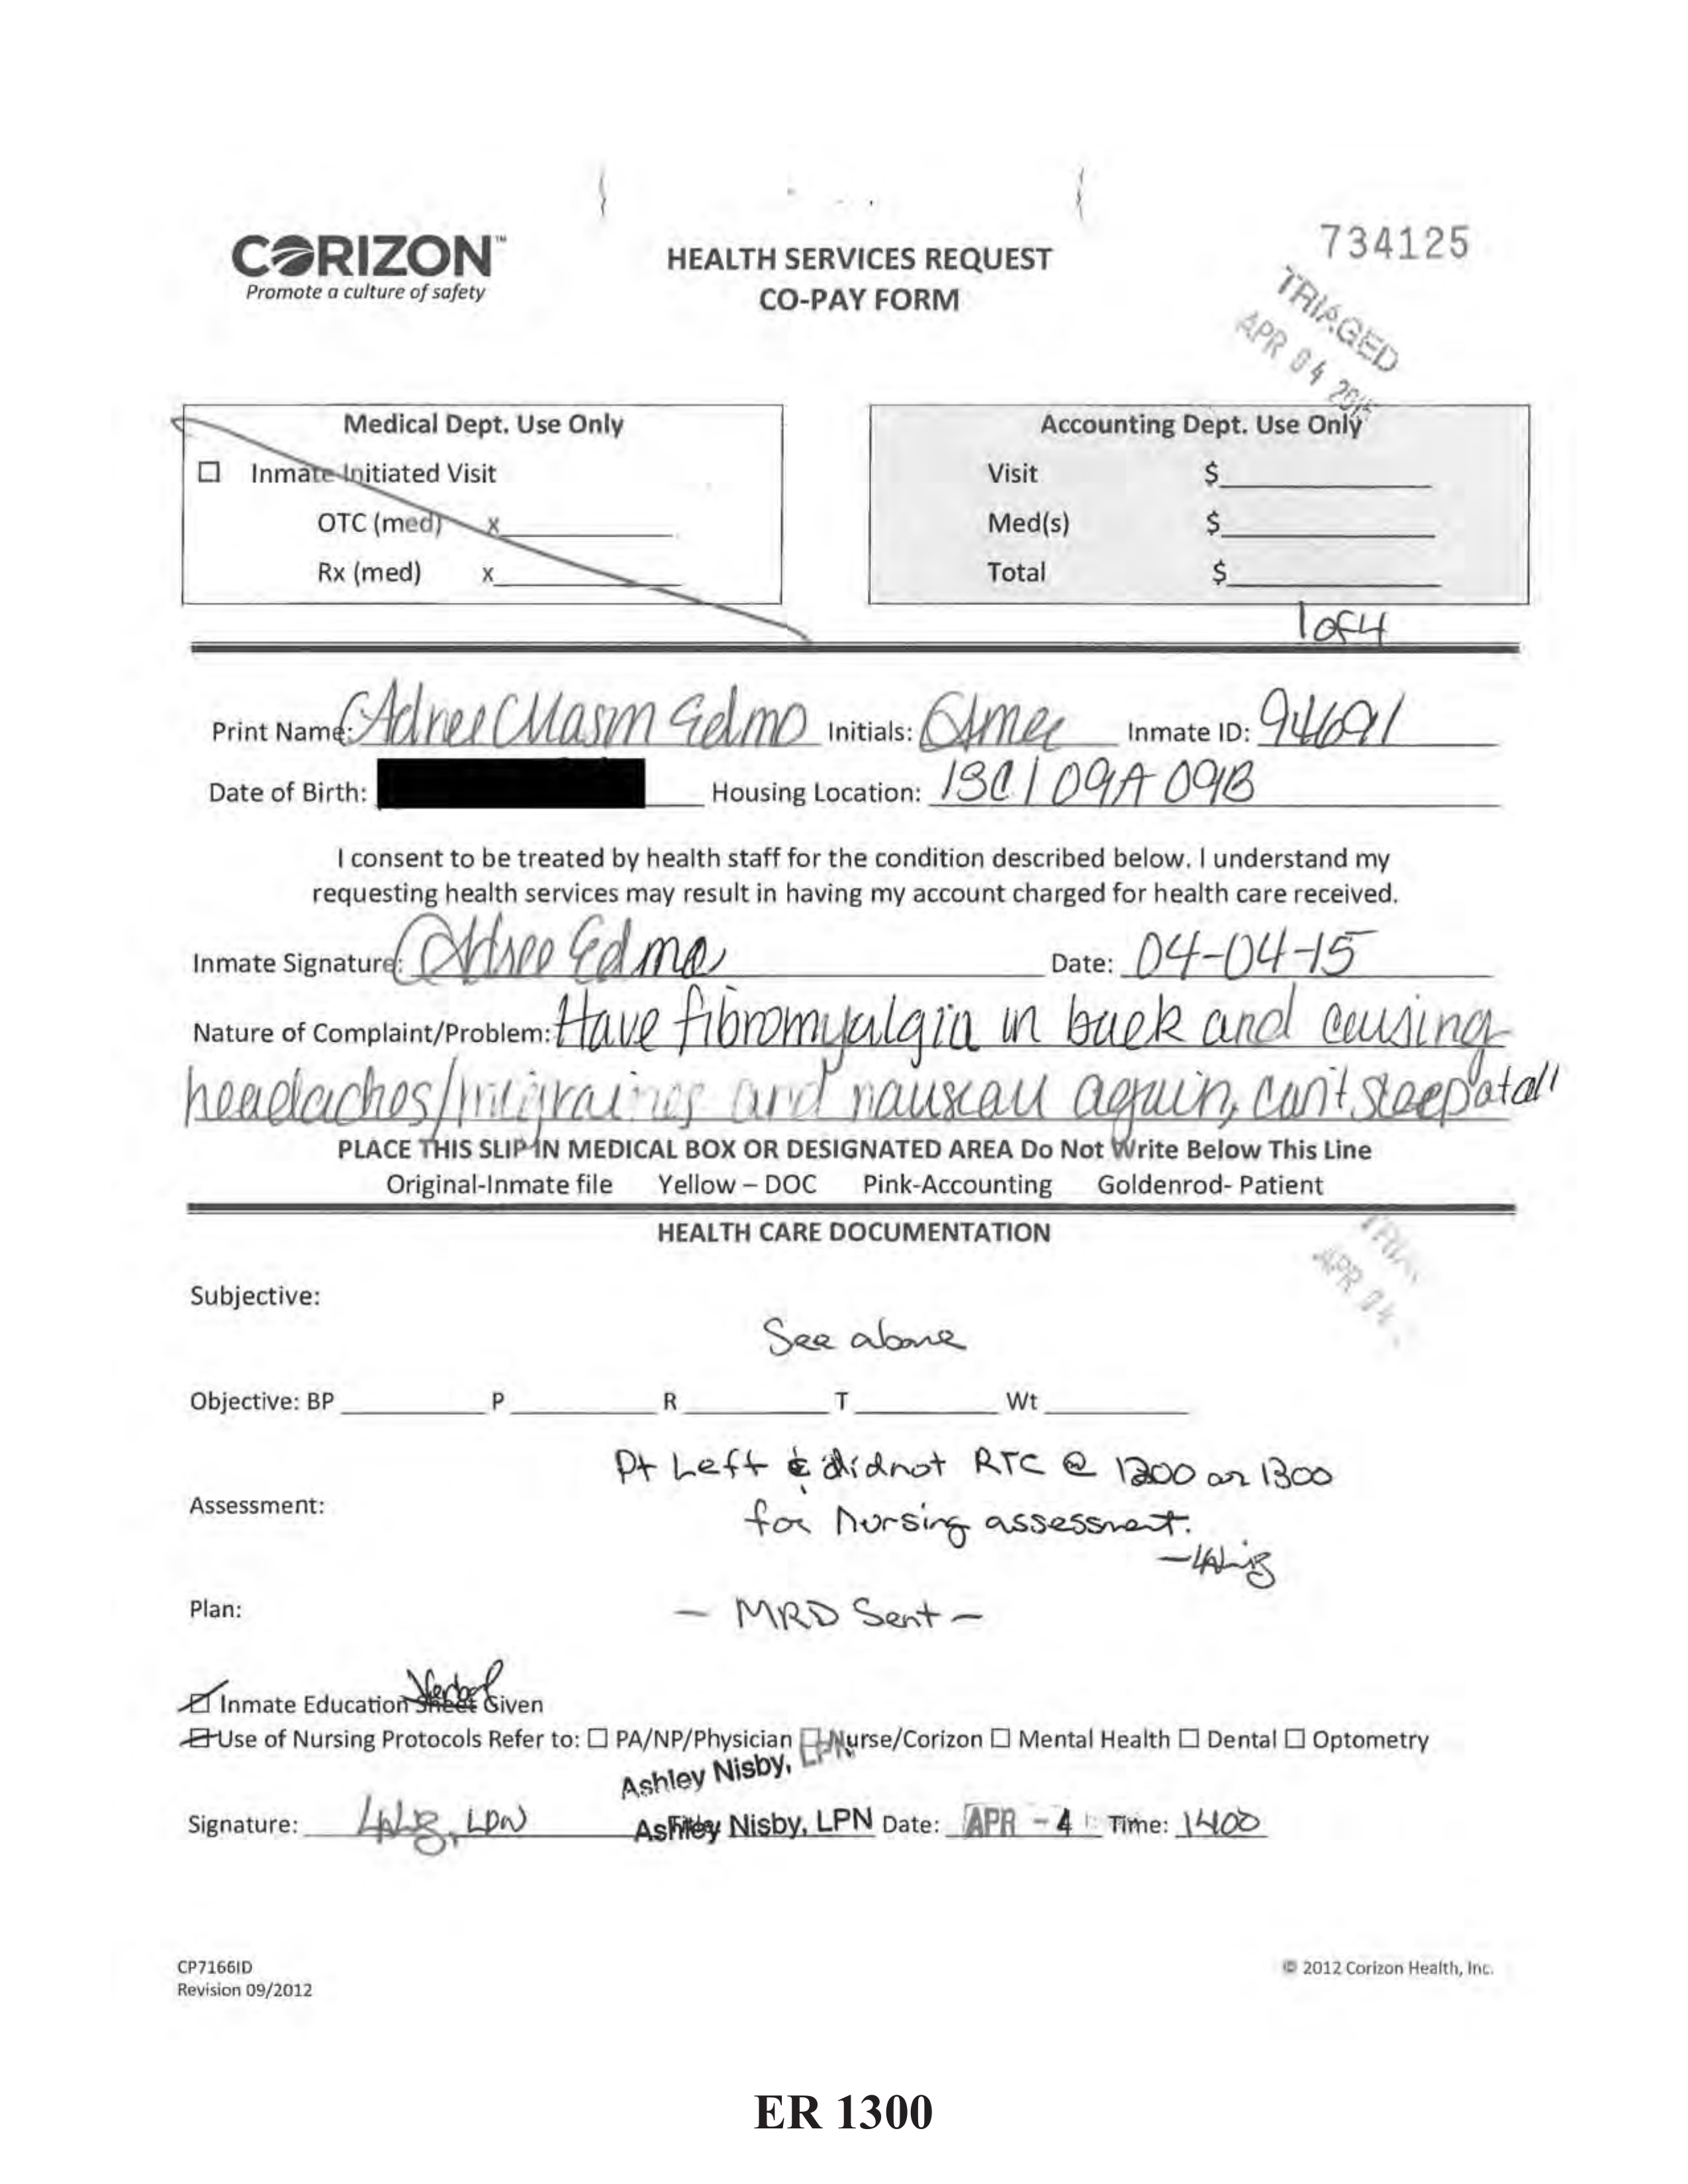 CORIZON™
Promote a culture of safety
HEALTH SERVICES REQUEST
CO-PAY FORM
734125
TRIAGED
APR 04 2015
Medical Dept. Use Only
☐ Inmate Initiated Visit
OTC (med) x
Rx (med) x
Accounting Dept. Use Only
Visit $
Med(s) $
Total $
1 of 4
Print Name: Adree Mason Edmo Initials: Inmate ID: 94691
Date of Birth: Housing Location: ISCI 09A 09B
I consent to be treated by health staff for the condition described below. I understand my
requesting health services may result in having my account charged for health care received.
Inmate Signature: Adree Edmo Date: 04-04-15
Nature of Complaint/Problem: Have fibromyalgia in back and causing
headaches/migraines and nauseau again, can't sleep at all
PLACE THIS SLIP IN MEDICAL BOX OR DESIGNATED AREA Do Not Write Below This Line
Original-Inmate file Yellow – DOC Pink-Accounting Goldenrod- Patient
HEALTH CARE DOCUMENTATION
APR 04
Subjective:
See above
Objective: BP P R T Wt
Pt Left & did not RTC @ 1200 or 1300
Assessment:
for Nursing assessment.
Plan: - MRD Sent -
☑ Inmate Education Sheet Verbal Given
Use of Nursing Protocols Refer to: ☐ PA/NP/Physician ☐ Nurse/Corizon ☐ Mental Health ☐ Dental ☐ Optometry
Ashley Nisby, LPN
Signature: LPN Ashley Nisby, LPN Date: APR - 4 Time: 1400
CP7166ID
Revision 09/2012
© 2012 Corizon Health, Inc.
ER 1300